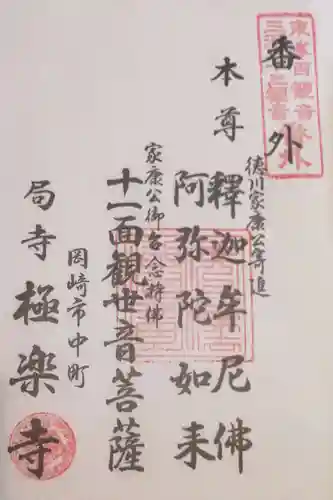 番外
本尊 釋迦牟尼佛
徳川家康公寄進
阿弥陀如来
家康公御台念持佛
十一面観世音菩薩
岡崎市中町
局寺 極楽寺